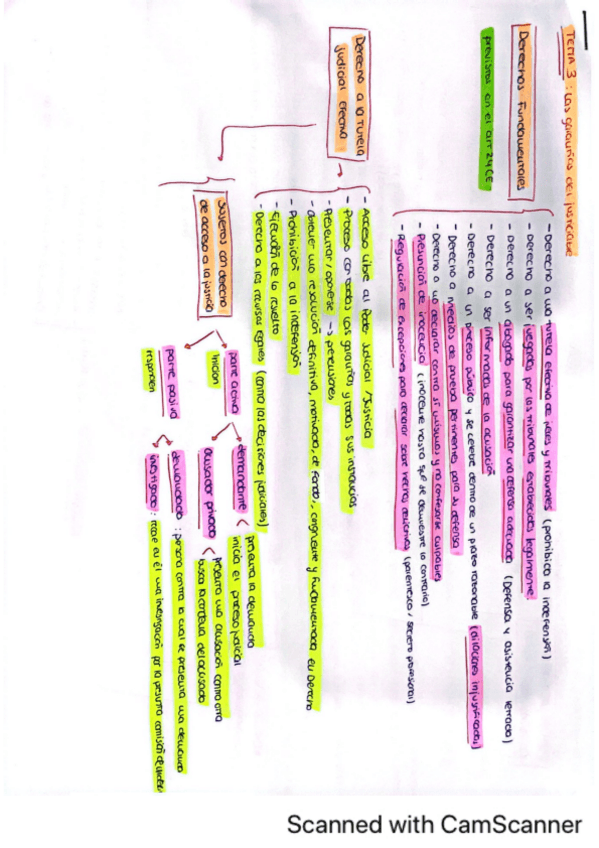 TEMA 3: Las garantías del justiciable
Derechos Fundamentales
previstos en el art 24 CE
- Derecho a una tutela efectiva de jueces y tribunales (prohibida la indefensión)
- Derecho a ser juzgados por los tribunales establecidos legalmente
- Derecho a un abogado para garantizar una defensa adecuada (Defensa y asistencia letrada)
- Derecho a ser informados de la acusación
- Derecho a un proceso público y se celebre dentro de un plazo razonable (dilaciones injustificadas)
- Derecho a medios de prueba pertinentes para su defensa
- Derecho a no declarar contra sí mismos y no confesarse culpables
- Presunción de inocencia (inocente hasta que se demuestre lo contrario)
- Regulación de excepciones para declarar sobre hechos delictivos (parentesco, secreto profesional)
Derecho a la tutela
judicial efectiva
- Acceso libre al Poder Judicial / Justicia
- Proceso con todas las garantías y todas sus instancias
- Presentar / oponerse → pretensiones
- obtener una resolución definitiva, motivada, de fondo, congruente y fundamentada en Derecho
- Prohibición a la indefensión
- Ejecución de lo resuelto
- Derecho a los recursos legales (contra las decisiones judiciales)
Sujetos con derecho
de acceso a la justicia
parte activa
inician
demandante < presenta la demanda
inicia el proceso judicial
acusador privado < presenta una acusación contra otra
busca la condena del acusado
parte pasiva
responden
demandado: persona contra la cual se presenta una demanda
investigado: recae en él una investigación por la presunta comisión de
Scanned with CamScanner